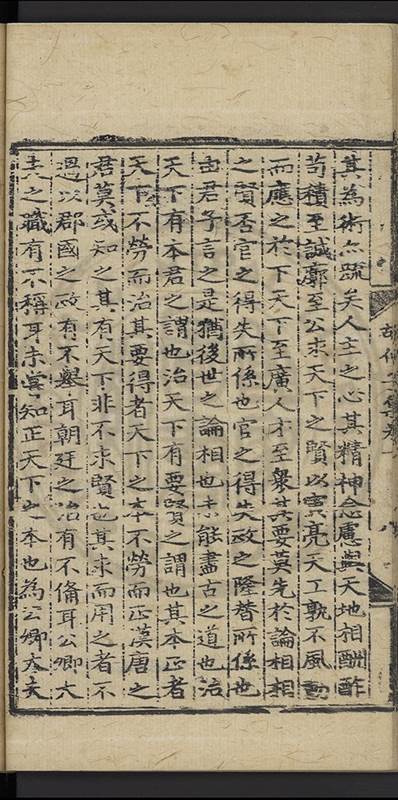 胡仲子集卷一
八
其為術亦疏矣人主之心其精神念慮與天地相酬酢
苟積至誠廓至公求天下之賢以寅亮天工孰不風動
而應之於下天下至廣人才至衆其要莫先於論相相
之賢否官之得失所係也官之得失政之隆替所係也
由君子言之是猶後世之論相也未能盡古之道也治
天下有本君之謂也治天下有要賢之謂也其本正者
天下不勞而治其要得者天下之本不勞而正漢唐之
君莫或知之其有天下非不求賢也其求而用之者不
過以郡國之政有不舉耳朝廷之治有不脩耳公卿大
夫之職有不稱耳未嘗知正天下之本也為公卿大夫